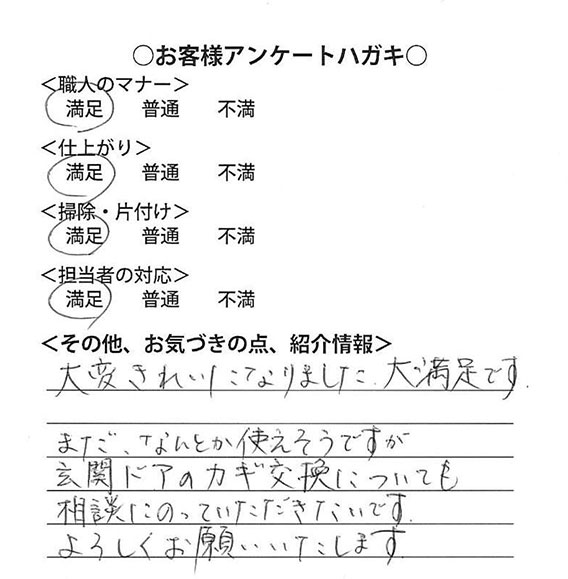 ○お客様アンケートハガキ○
＜職人のマナー＞
満足 普通 不満
＜仕上がり＞
満足 普通 不満
＜掃除・片付け＞
満足 普通 不満
＜担当者の対応＞
満足 普通 不満
＜その他、お気づきの点、紹介情報＞
大変きれいになりました。大満足です。
まだ、なんとか使えそうですが
玄関ドアのカギ交換についても
相談にのっていただきたいです。
よろしくお願いいたします。